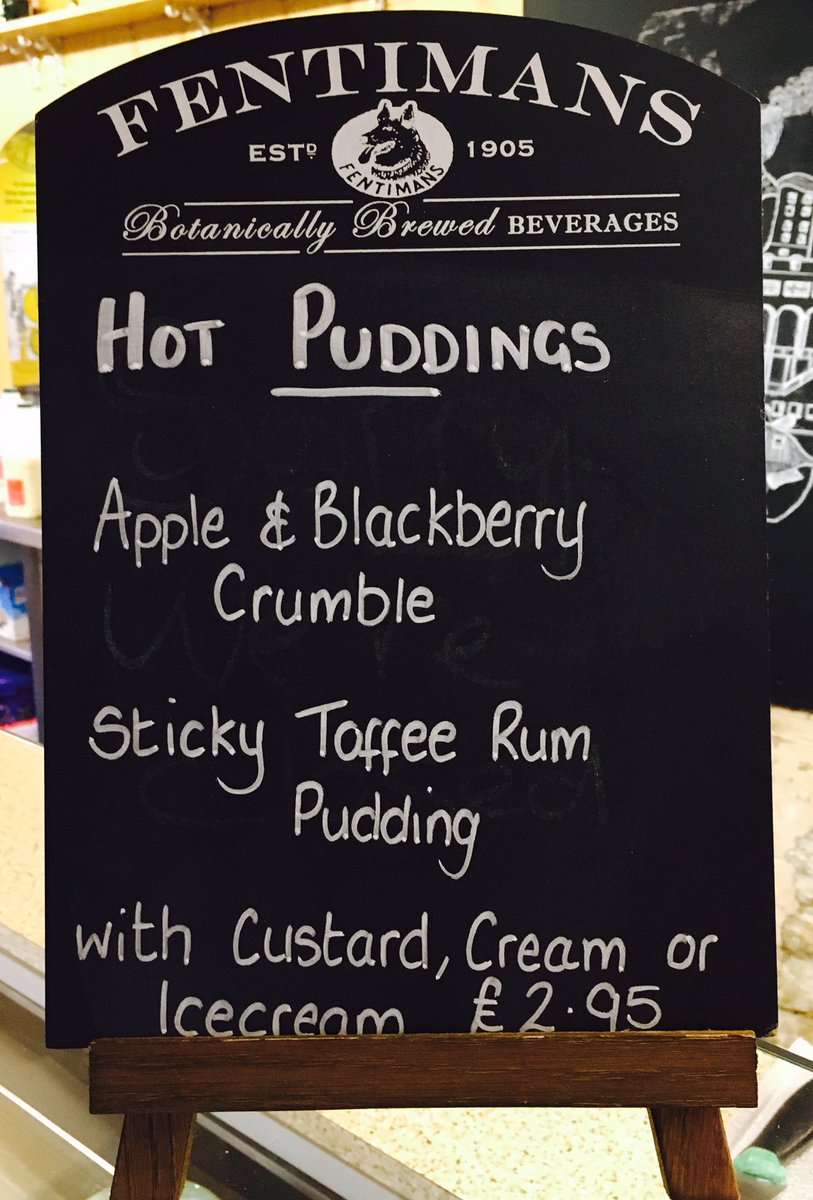 FENTIMANS
ESTD 1905
FENTIMANS
Botanically Brewed BEVERAGES
HOT PUDDINGS
Sorry
Apple & Blackberry
Crumble
We're
Sticky Toffee Rum
Closed
Pudding
with Custard, Cream or
Icecream £2.95